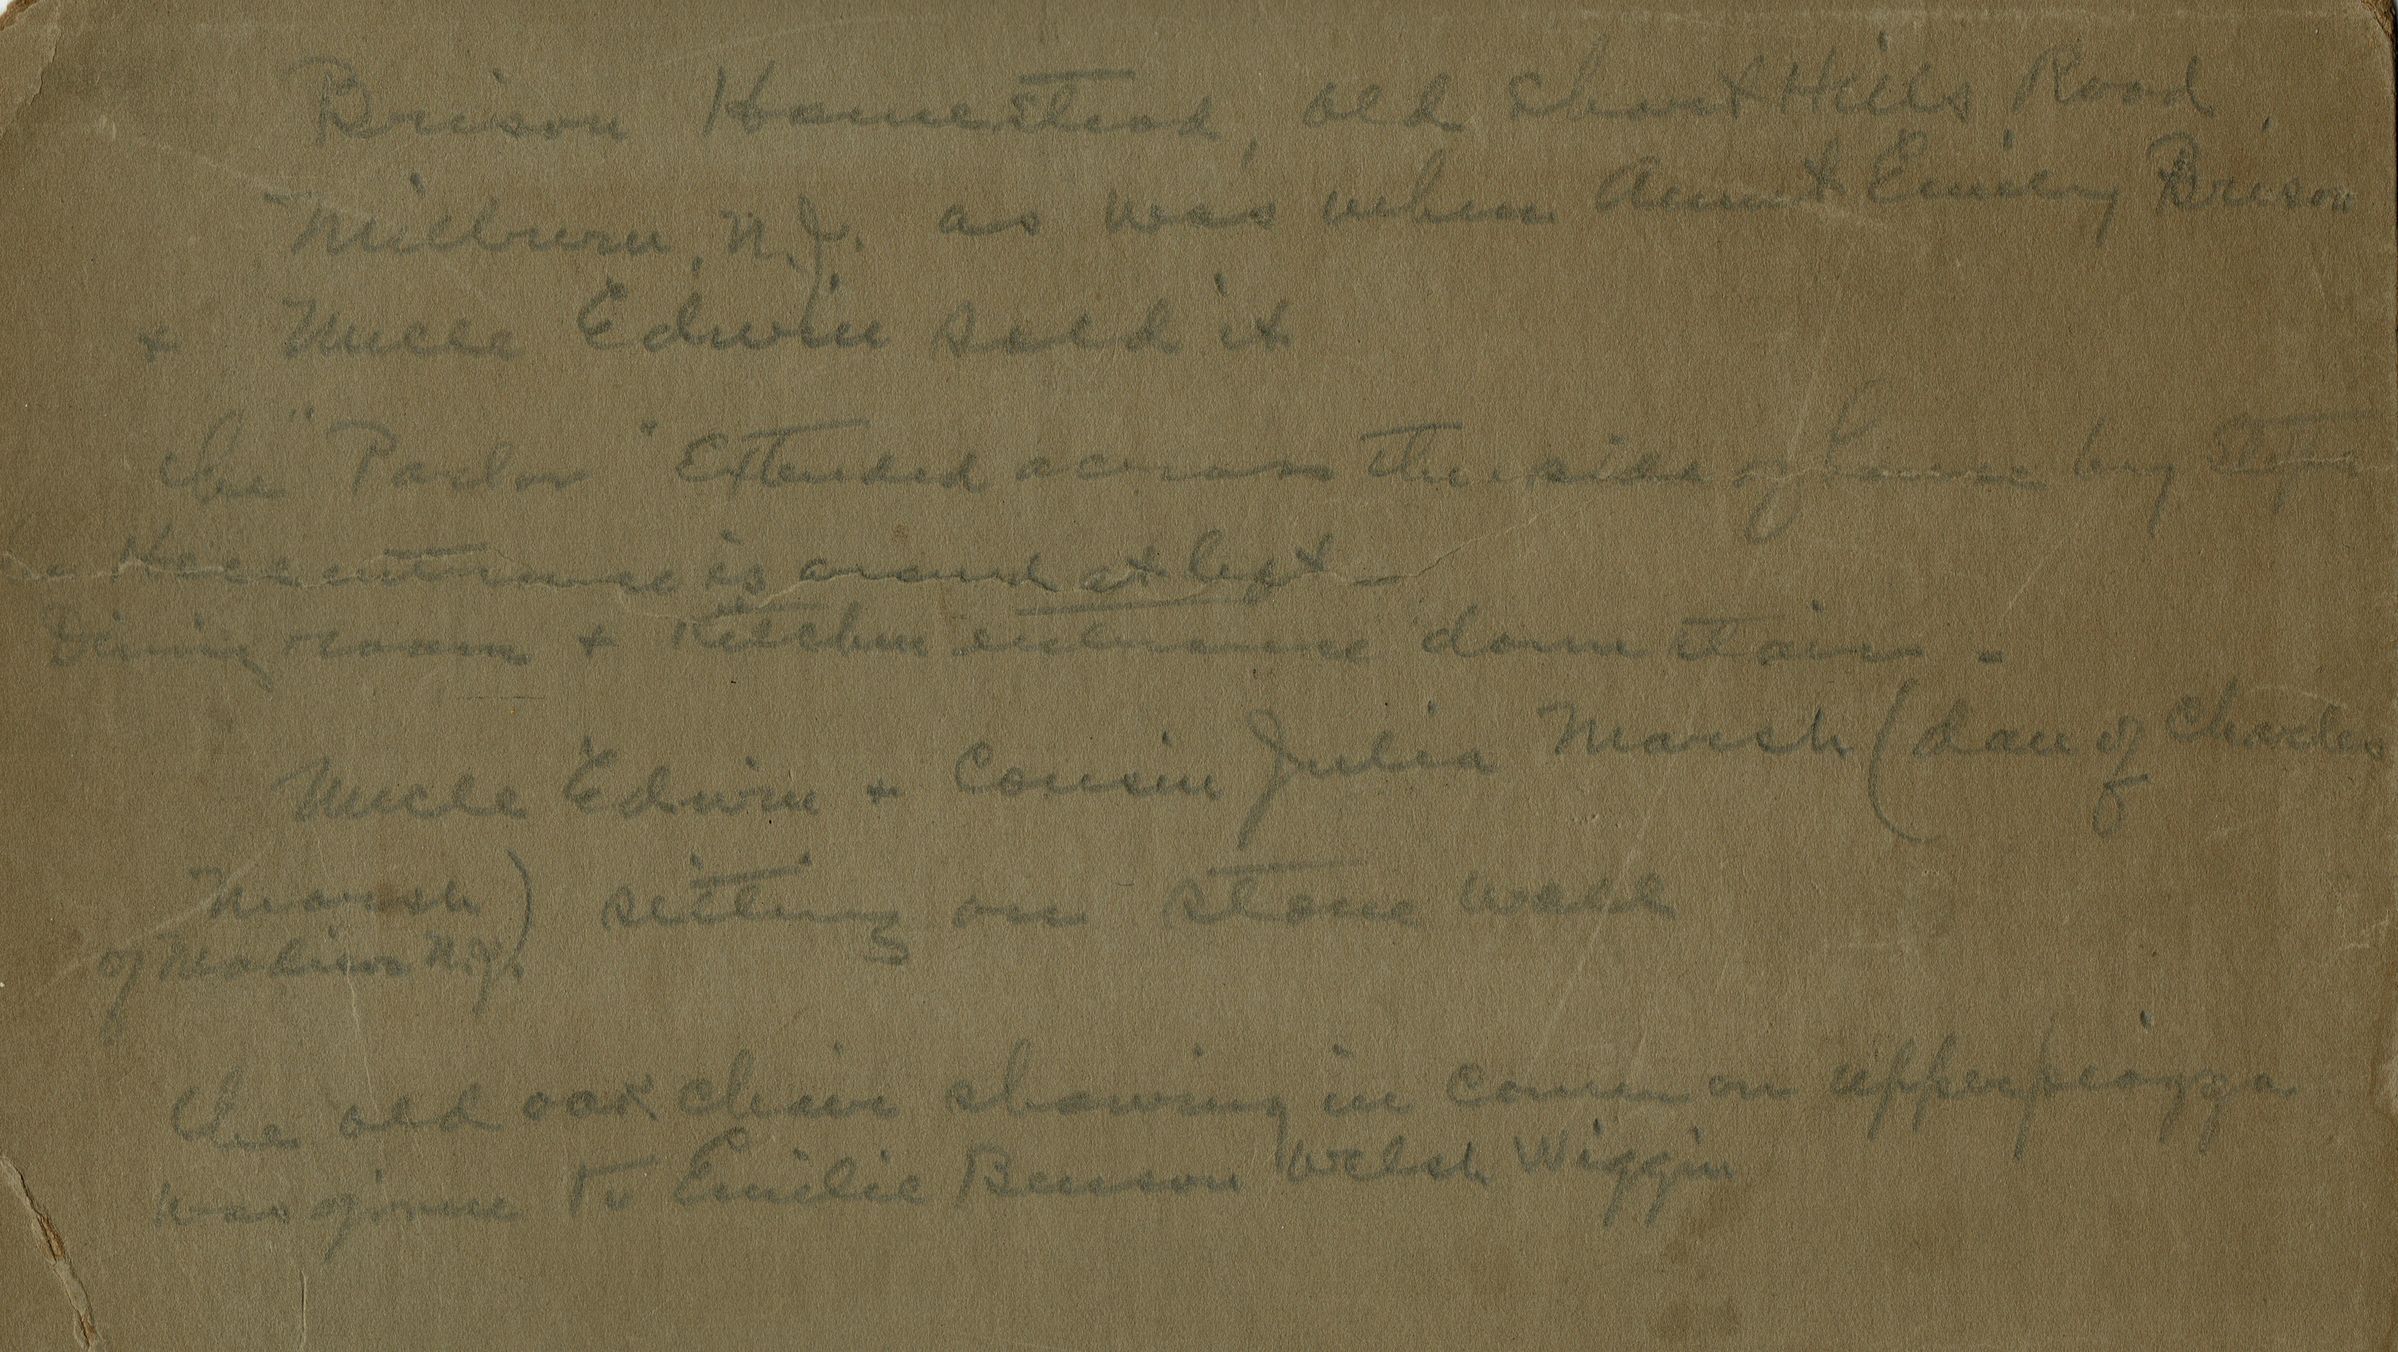 Brison Homestead, old Short Hills Road,
Milburn, N.J. as was when Aunt Emily Brison
+ Uncle Edwin sold it
The "Parlor" Extended across the side of house by steps
Hall entrance is around at left —
Dining room + Kitchen entrance down stairs -
Uncle Edwin + Cousin Julia Marsh (dau of Charles
Marsh) sitting on stone wall
of Madison N.J.
The old oak chair showing in corner on upper piazza
was given to Emilie Benson Welsh Wiggin